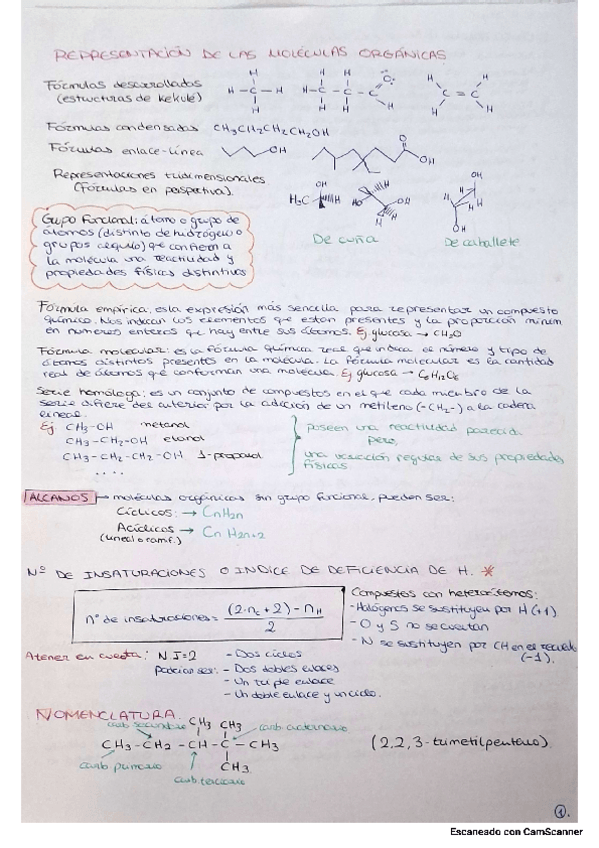 REPRESENTACIÓN DE LAS MOLÉCULAS ORGÁNICAS
Fórmulas desarrolladas
(estructuras de Kekulé)
Fórmulas condensadas CH3CH2CH2CH2OH
Fórmulas enlace-línea
Representaciones tridimensionales
(Fórmulas en perspectiva).
De cuña
De caballete
Grupo Funcional: átomo o grupo de
átomos (distinto de hidrógeno o
grupos alquilo) que confieren a
la molécula una reactividad y
propiedades físicas distintivas
Fórmula empírica: es la expresión más sencilla para representar un compuesto
químico. Nos indican los elementos que están presentes y la proporción mínima
en números enteros que hay entre sus átomos. Ej glucosa → CH2O
Fórmula molecular: es la fórmula química real que indica el número y tipo de
átomos distintos presentes en la molécula. La fórmula molecular es la cantidad
real de átomos que conforman una molécula. Ej glucosa → C6H12O6
Serie homóloga: es un conjunto de compuestos en el que cada miembro de la
serie difiere del anterior por la adición de un metileno (-CH2-) a la cadena
lineal.
Ej CH3-OH metanol
CH3-CH2-OH etanol
CH3-CH2-CH2-OH 1-propanol
....
poseen una reactividad parecida
pero,
una variación regular de sus propiedades
físicas
ALCANOS → moléculas orgánicas sin grupo funcional, pueden ser:
Cíclicos: → CnH2n
Acíclicos → CnH2n+2
(lineal o ramif.)
Nº DE INSATURACIONES O INDICE DE DEFICIENCIA DE H. *
nº de insaturaciones = (2·nc + 2) - nH / 2
Compuestos con heteroátomos:
- Halógenos se sustituyen por H (+1)
- O y S no se cuentan
- N se sustituyen por CH en el recuento
(-1).
Atener en cuenta: NI=2
Podrían ser:
- Dos ciclos
- Dos dobles enlaces
- Un triple enlace
- Un doble enlace y un ciclo.
NOMENCLATURA.
carb secundario CH3 CH3 carb cuaternario
CH3-CH2-CH-C-CH3 (2,2,3-trimetilpentano)
CH3
carb primario
carb. terciario
1.
Escaneado con CamScanner